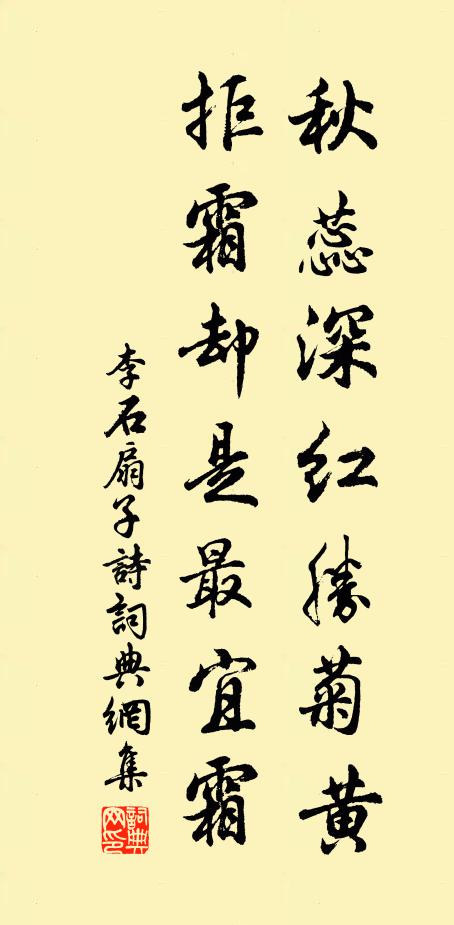 秋蕊深红勝菊黄
拒霜却是最宜霜
李石扇子詩詞典網集
詞典網印